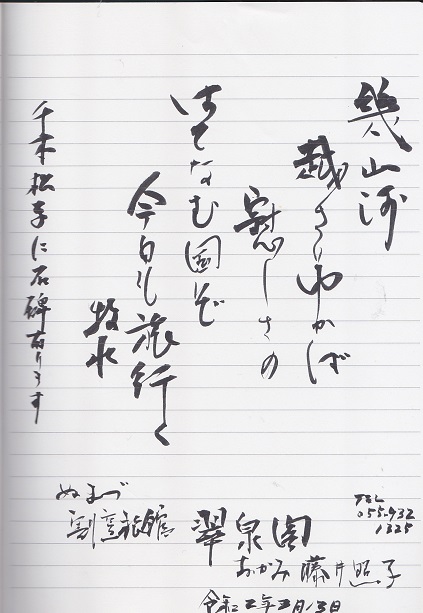 幾山河
越さりゆかば
寂しさの
はてなむ國ぞ
今日も旅行く
牧水
千本松原に石碑有ります
TEL
055-932
1325
ぬまづ
割烹旅館
翠泉閣
おかみ 藤井照子